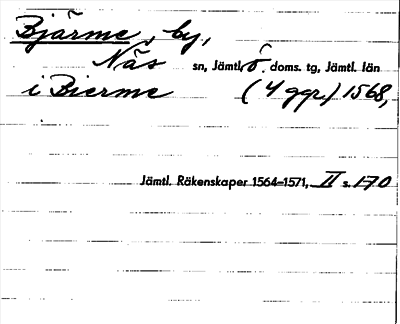 Bjärme, by,
Näs sn, Jämtl. ö. doms. tg, Jämtl. län
i Bierme (4 ggr) 1568,
Jämtl. Räkenskaper 1564–1571, II s. 170